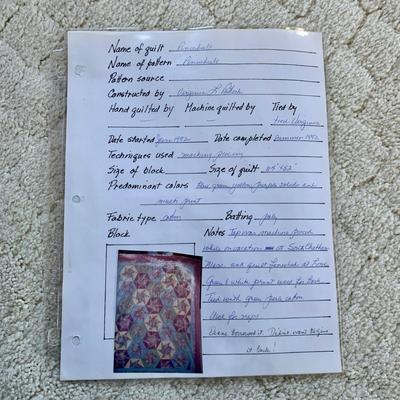 Name of quilt Pinwheels
Name of pattern Pinwheels
Pattern source
Constructed by Virginia L.
Hand quilted by Machine quilted by Tied by
tied Virginia
Date started June 1992 Date completed Summer 1992
Techniques used machine piecing
Size of block Size of quilt
Predominant colors Blue green yellow purple solids and
multi print
Fabric type cotton Batting poly
Block Notes Top was machine pieced
while on vacation at South Chatham
Mass. and quilt finished at home
Green & white print used for back
Tied with green perle cotton
Used for naps.
borrowed it. Didn't want to give
it back!